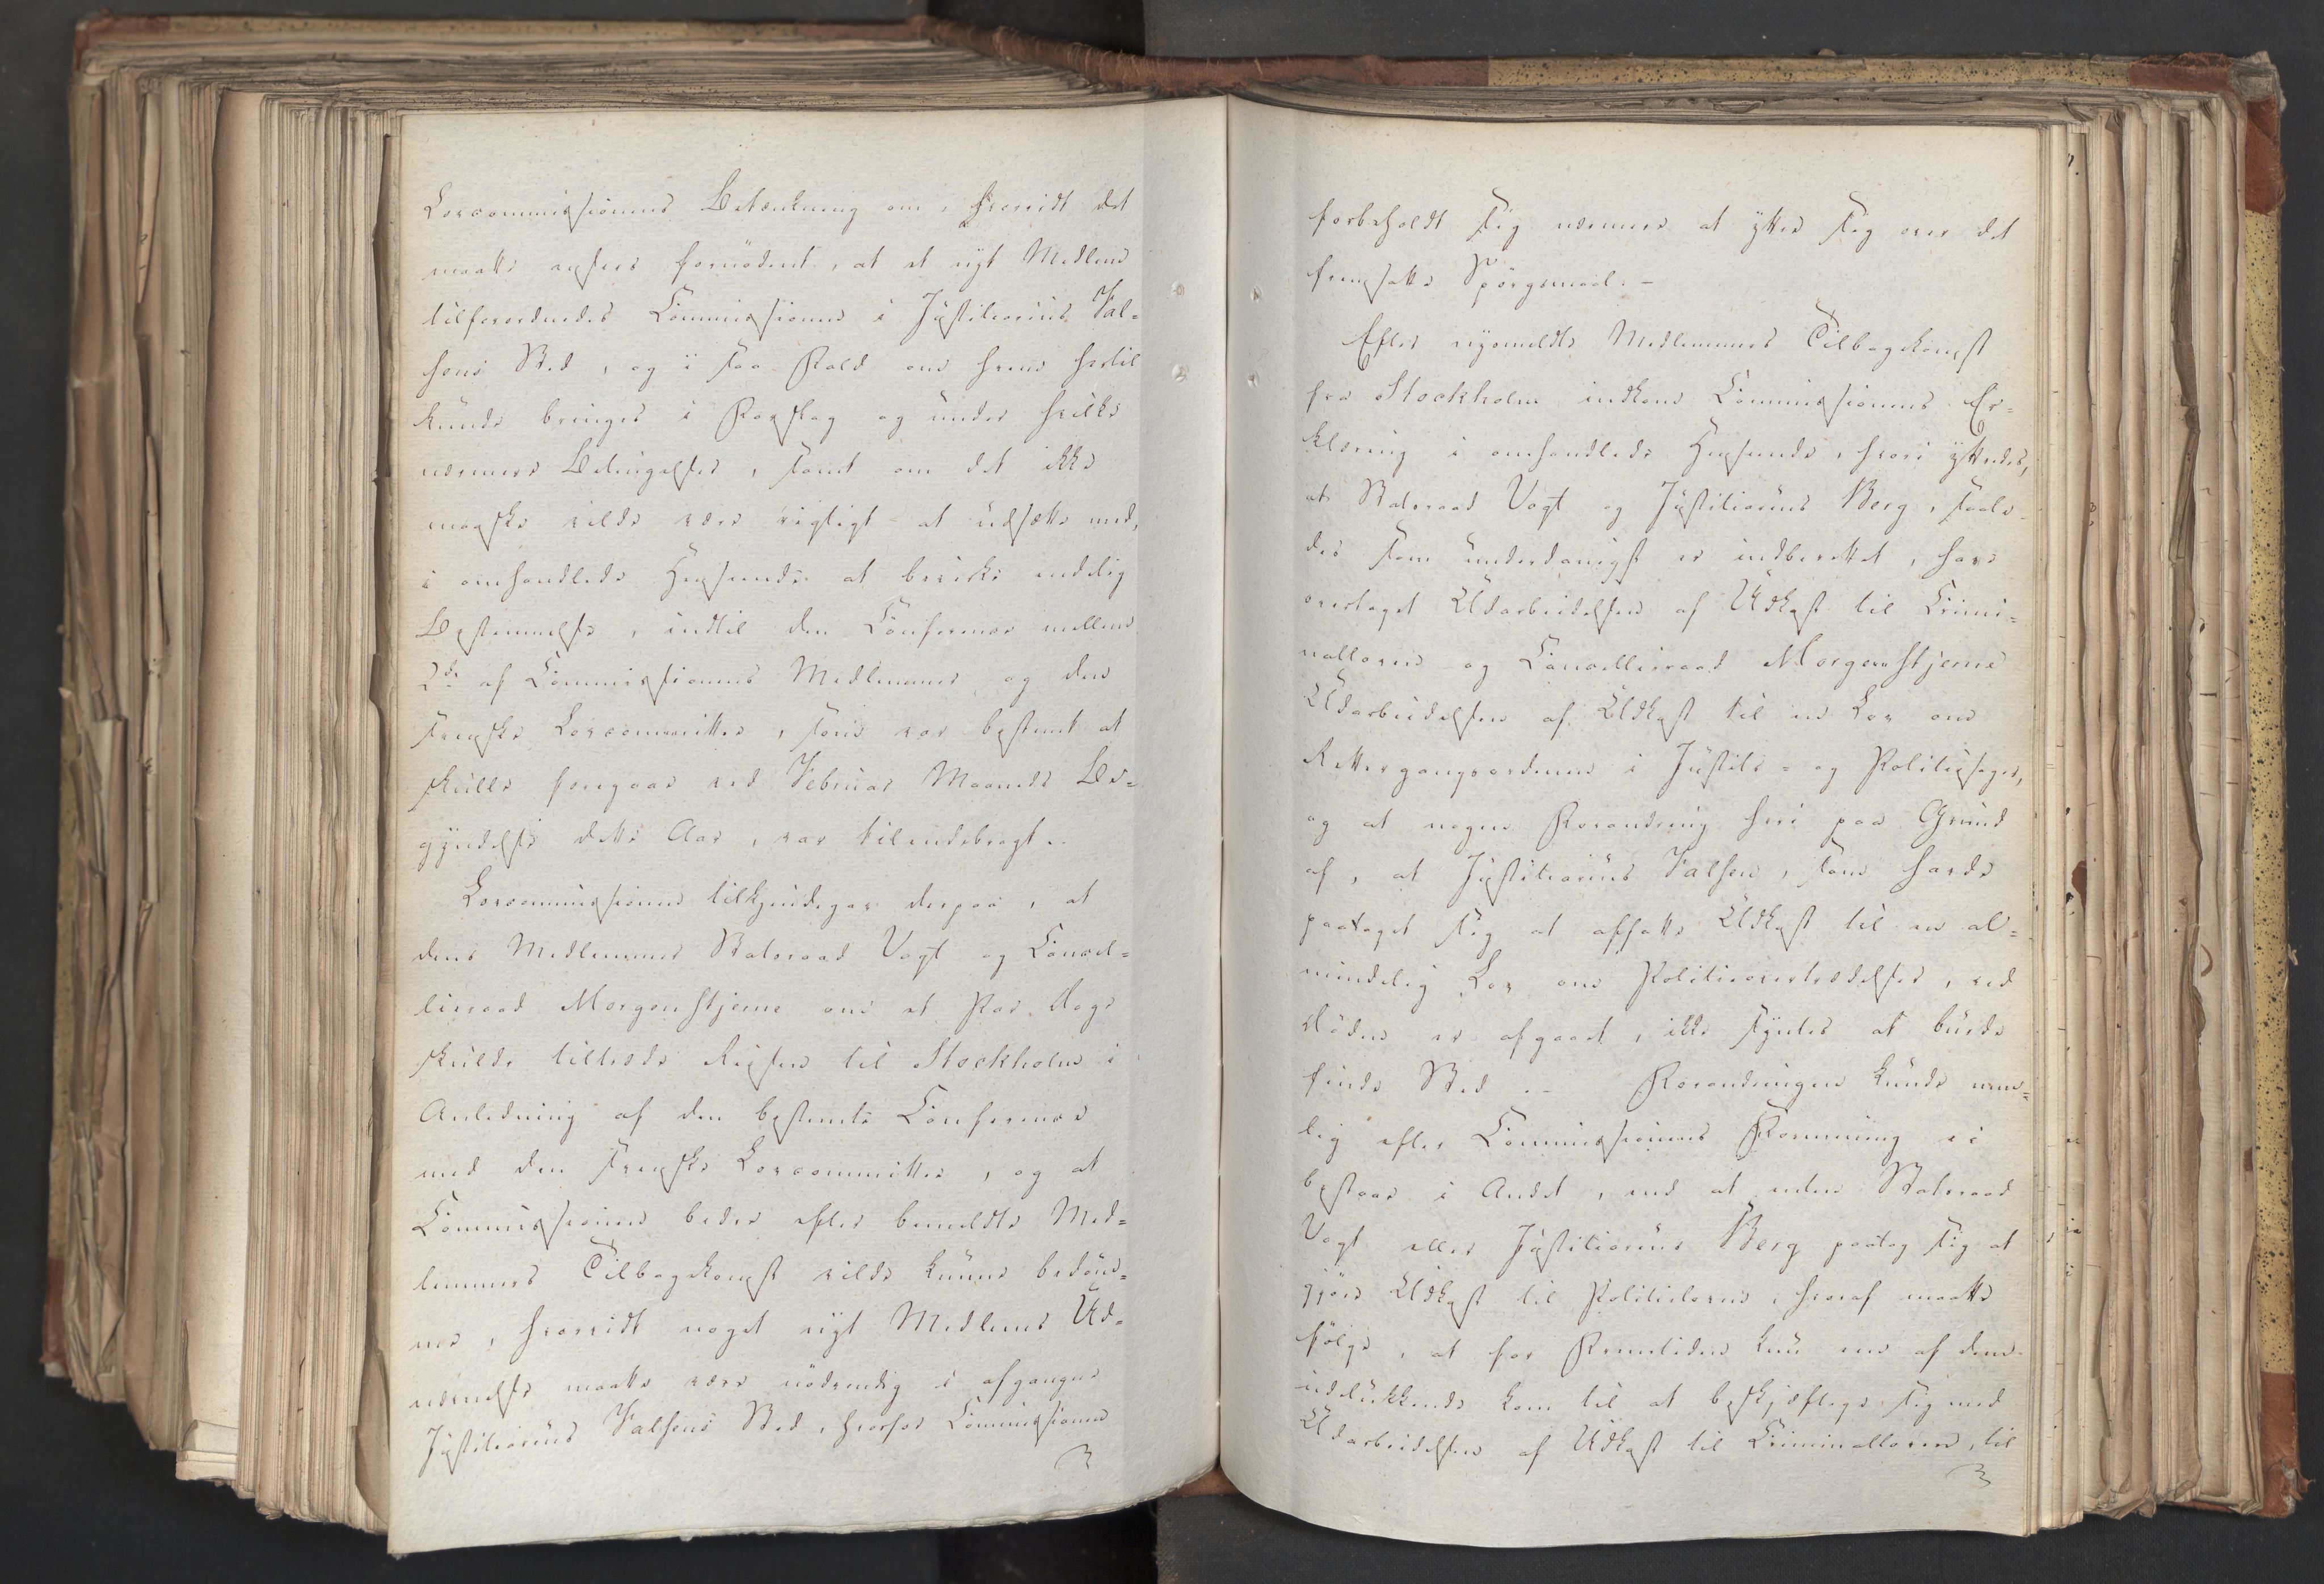 Lovcommissionens Betænkning om, hvorvidt det
maatte ansees fornødent, at et nyt Medlem
tilforordnedes Commissionen i Justitiarius Fal-
sens Sted, og i saa Fald om hvem hertil
kunde bringes i Forslag og under hvilke
nærmere Betingelser, samt om det ikke
maaske vilde være rigtigt at udsætte med,
i omhandlede Henseende at bevirke endelig
Bestemmelse, indtil den Conference mellem
2de af Commissionens Medlemmer og den
svenske Lovcommittee, som var bestemt at
skulle foregaae ved Februar Maaneds Be-
gyndelse dette Aar, var tilendebragt. -
Lovcommissionen tilkjendegav derpaa, at
dens Medlemmer Statsraad Vogt og Cancel-
lieraad Morgenstjerne om et Par Dage
skulde tiltræde Reisen til Stockholm i
Anledning af den bestemte Conference
med den svenske Lovcommittee, og at
Commissionen bedre efter bemeldte Med-
lemmers Tilbagekomst vilde kunne bedøm-
me, hvorvidt noget nyt Medlems Ud-
nævnelse maatte være nødvendig i afgangne
Justitiarius Falsens Sted, hvorfor Commissionen
forbeholdt sig nærmere at yttre sig over det
fremsatte Spørgsmaal. -
Efter nysmeldte Medlemmers Tilbagekomst
fra Stockholm indkom Commissionens Er-
klæring i omhandlede Henseende, hvori yttredes,
at Statsraad Vogt og Justitiarius Berg, saale-
des som underdanigst er indberettet, have
overtaget Udarbeidelsen af Udkast til Crimi-
nalloven og Cancellieraad Morgenstjerne
Udarbeidelsen af Udkast til en Lov om
Rettergangsordenen i Justits- og Politiesager,
og at nogen Forandring heri paa Grund
af, at Justitiarius Falsen, som havde
paataget sig at affatte Udkast til en al-
mindelig Lov om Politieovertrædelser, ved
Døden er afgaaet, ikke syntes at burde
finde Sted. - Forandringen kunde nem-
lig efter Commissionens Formening ei
bestaae i Andet, end at enten Statsraad
Vogt eller Justitiarius Berg paatog sig at
gjøre Udkast til Politieloven, hvoraf maatte
følge, at for Fremtiden kun een af dem
udelukkende kom til at beskjæftige sig med
Udarbeidelsen af Udkast til Criminalloven, til